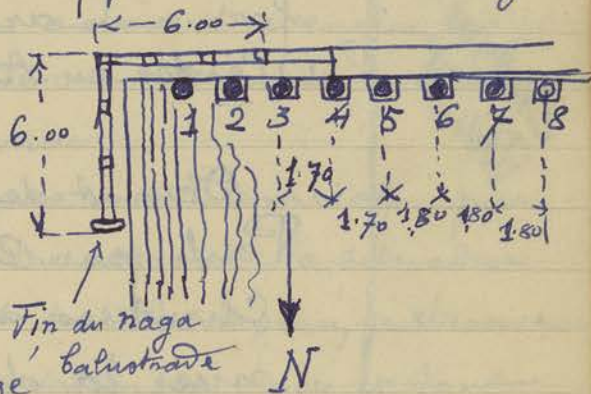 6.00
6.00
1 2 3 4 5 6 7 8
1.70
1.70 1.80 1.80 1.80
Fin du naga
balustrade
N